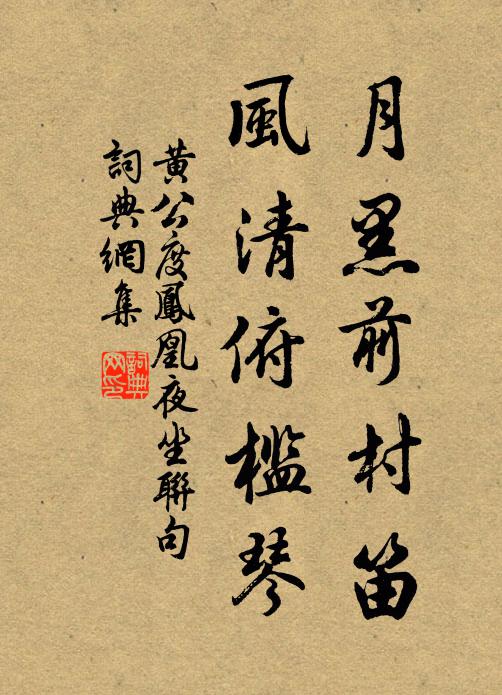 月黑前村笛
風清俯檻琴
黃公度鳳凰夜坐聯句
詞典網集
詞典网印